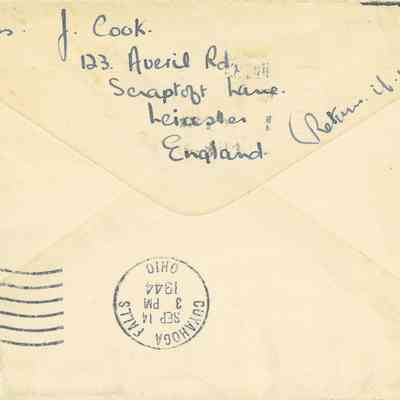 s. J. Cook.
123. Averil Rd,
Scraptoft Lane.
Leicester
England.
(Return if
CUYAHOGA FALLS
SEP 14
3 PM
1944
OHIO